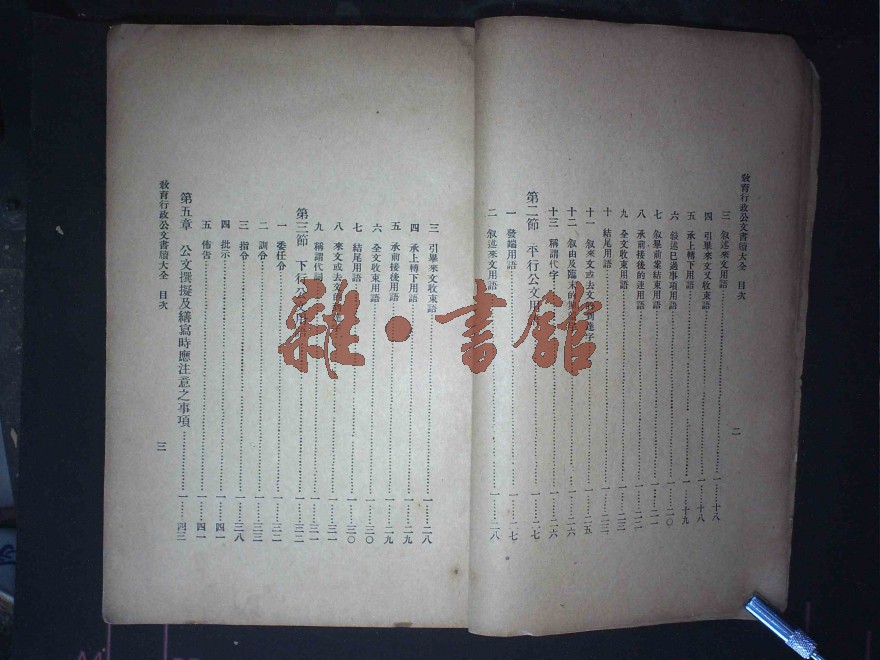 教育行政公文書牘大全 目次
二
三 叙述來文用語 一 一八
四 引畢來文又收束語 一 一八
五 承上轉下用語 一 一九
六 叙述已過事項用語 一 二〇
七 叙畢前案結束用語 一 二一
八 承前接後的連用語 一 二二
九 全文收束用語 一 二三
十 結尾用語
十一 叙來文或去文 到達字 一 二五
十二 叙由及臨末的 一 二六
十三 稱謂代字 一 二六
第二節 平行公文用 一 二七
一 發端用語 一 二七
二 叙述來文用語 一 二八
三 引畢來文收束語 一 二八
四 承上轉下用語 一 二九
五 承前接後用語 一 二九
六 全文收束用語 一 三〇
七 結尾用語 一 三〇
八 來文或去文 一 三一
九 稱謂代詞 一 三一
第三節 下行公文用 一 三二
一 委任令 一 三二
二 訓令 一 三三
三 指令 一 三八
四 批示 一 四一
五 佈告 一 四一
第五章 公文撰擬及繕寫時應注意之事項 一 四三
教育行政公文書牘大全 目次
三
雜·書館